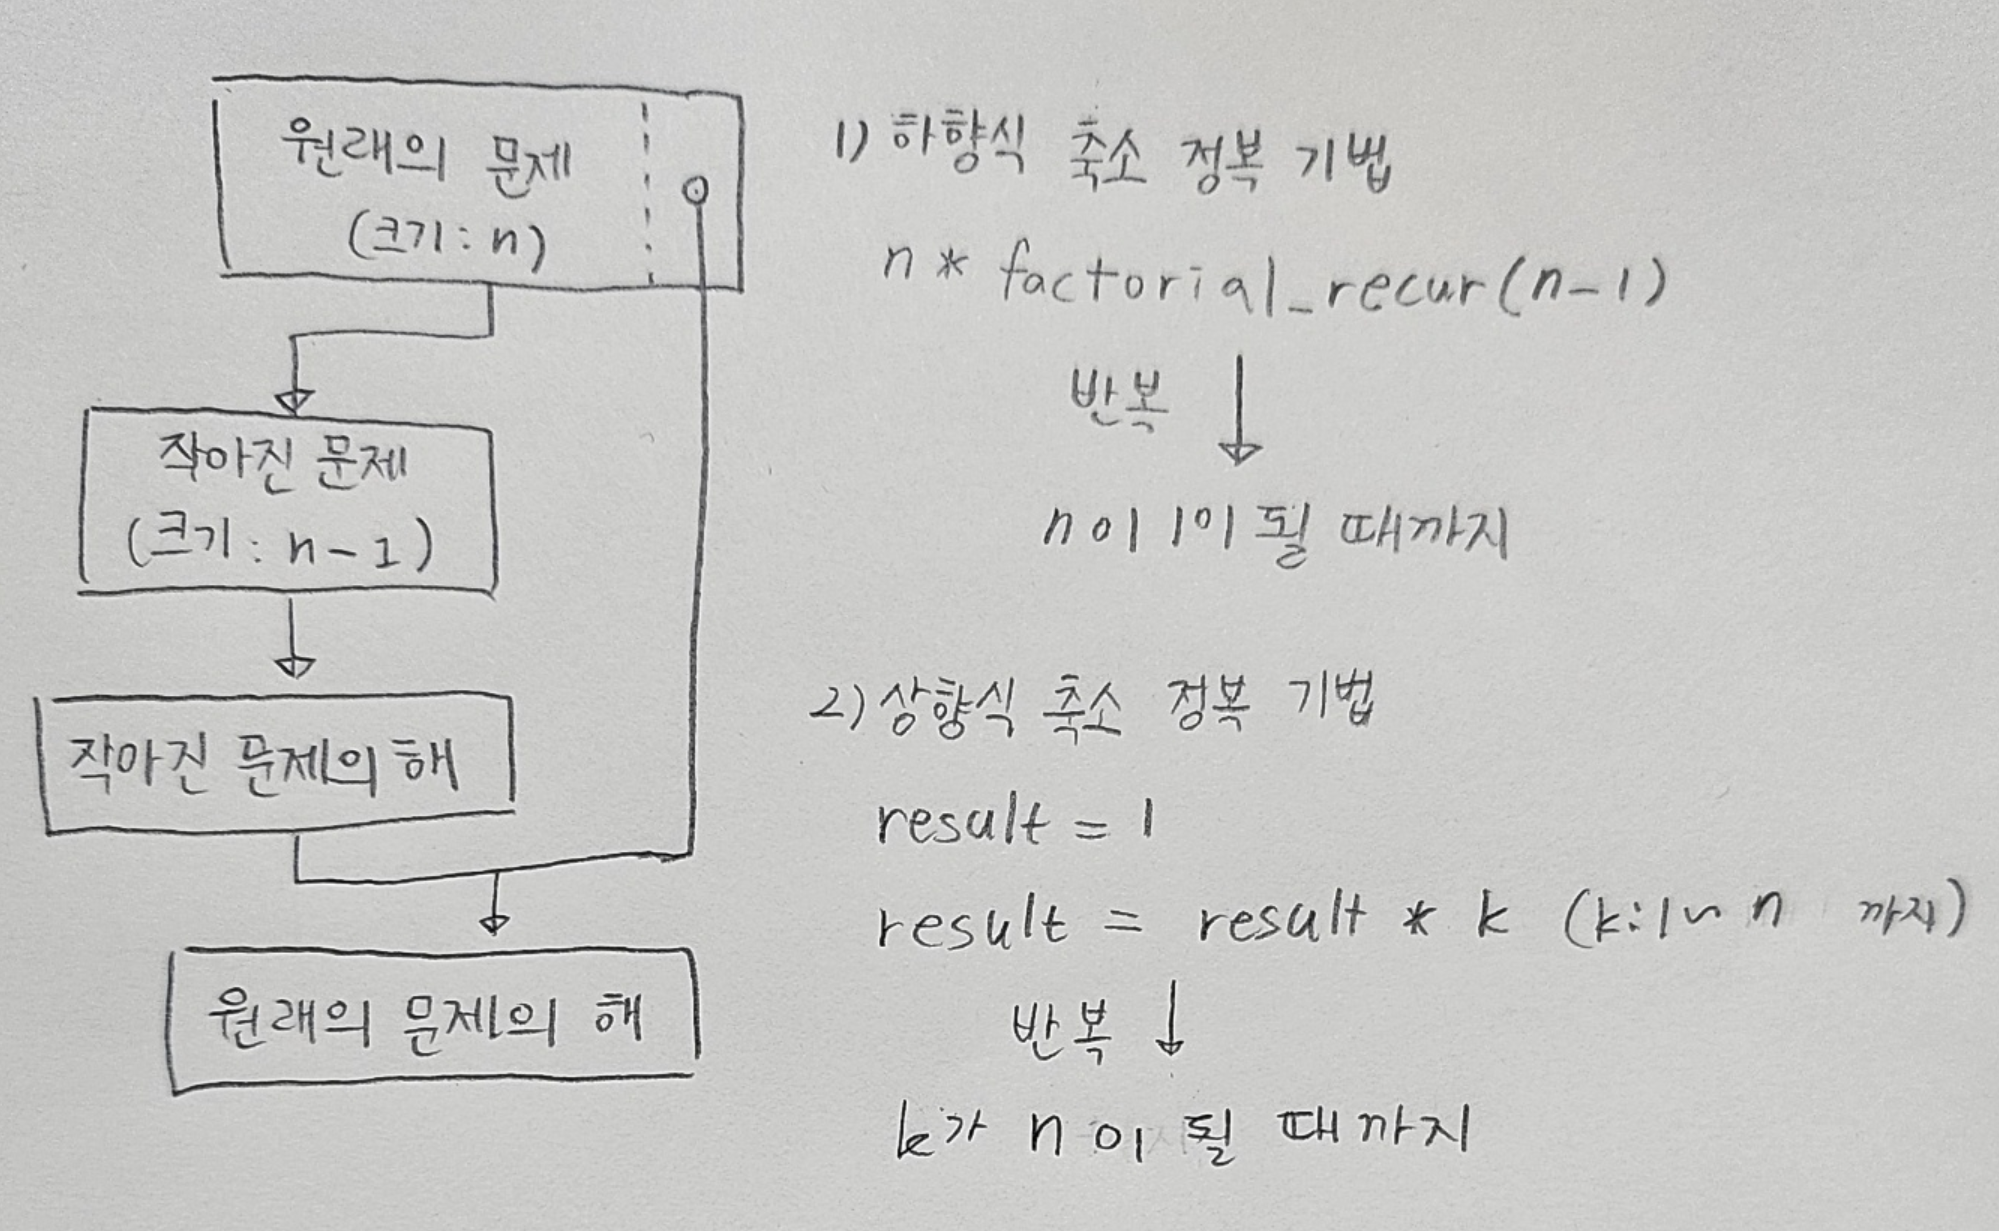 원래의 문제
(크기 : n)
작아진 문제
(크기 : n-1)
작아진 문제의 해
원래의 문제의 해
1) 하향식 축소 정복 기법
n * factorial_recur(n-1)
반복
n이 1이 될 때까지
2) 상향식 축소 정복 기법
result = 1
result = result * k (k:1~n 까지)
반복
k가 n이 될 때까지